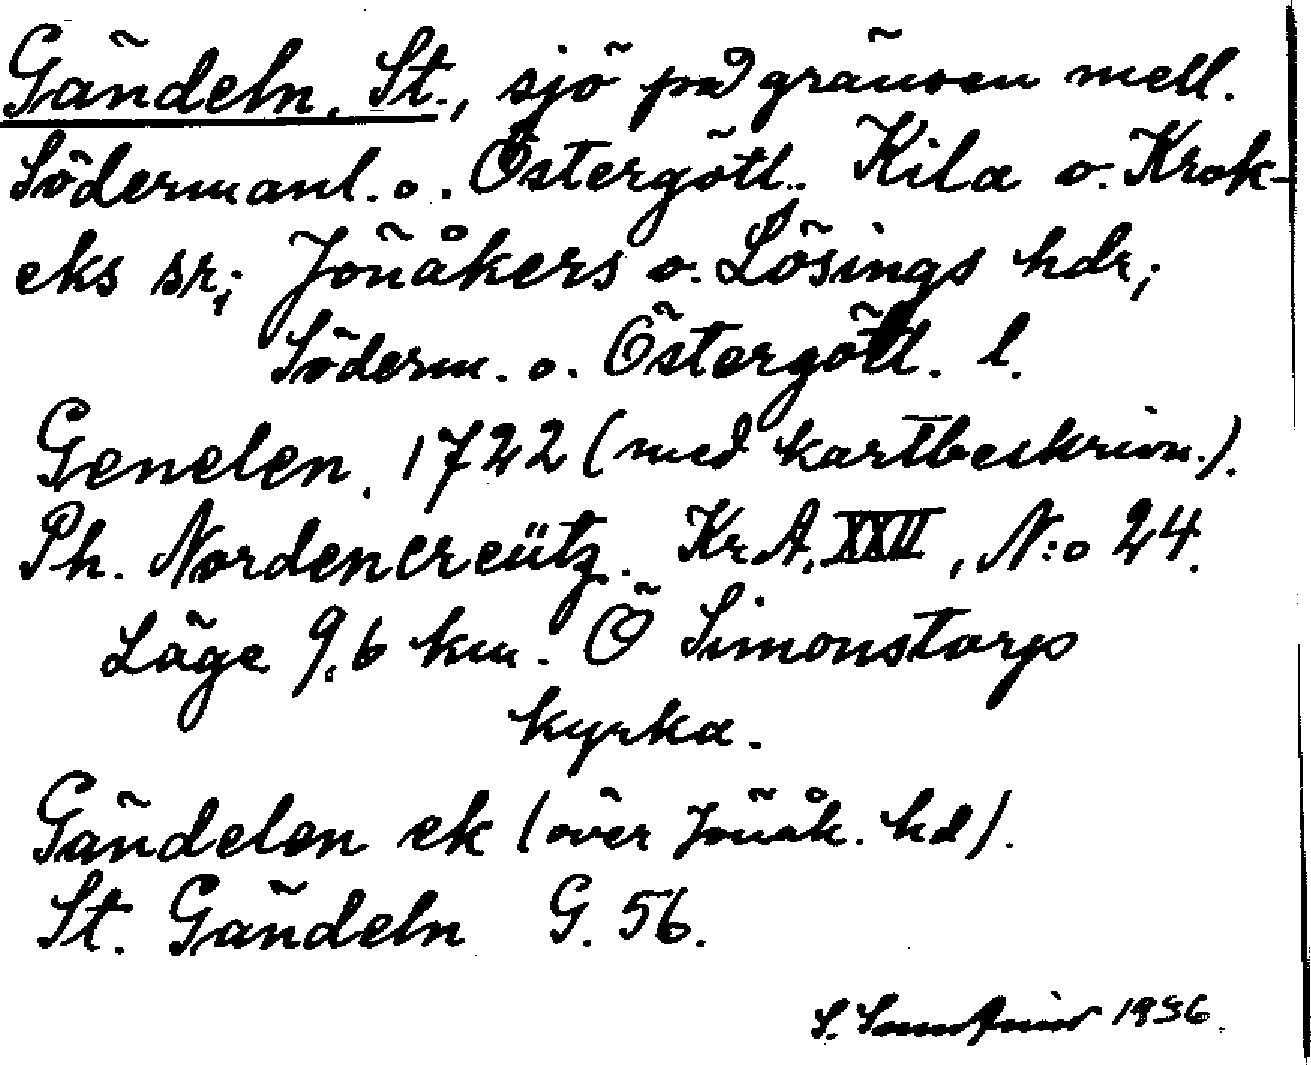 Gändeln, St., sjö på gränsen mell.
Södermanl. o. Östergötl. Kila o. Krok-
eks sr; Jönåkers o. Lösings hdr;
Söderm. o. Östergötl. l.
Genelen, 1722 (med kartbeskrivn.).
Ph. Nordencreütz. Kr.A. XXII, N:o 24.
Läge 9,6 km. Ö Simonstorps
kyrka.
Gändelen ek (över Jönåk. hd).
St. Gändeln G. 56.
S. 1936.